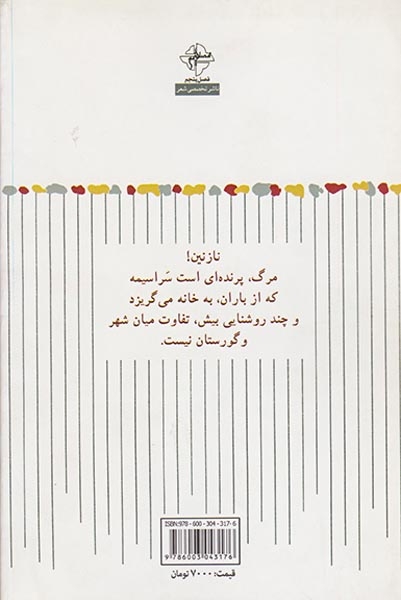 فصل پنجم
ناشر تخصصی شعر
نازنین!
مرگ، پرنده‌ای است سَراسیمه
که از باران، به خانه می‌گریزد
و چند روشنایی بیش، تفاوت میان شهر
و گورستان نیست.
ISBN:978-600-304-317-6
9786003043176
قیمت: ۷۰۰۰ تومان